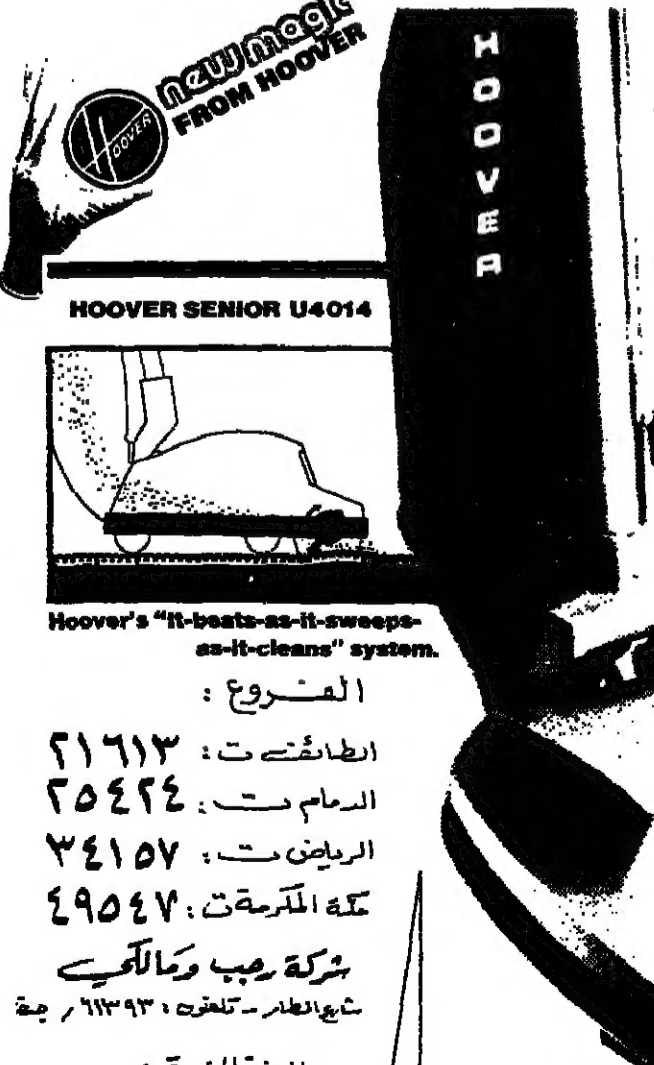 new magic
FROM HOOVER
HOOVER
HOOVER
HOOVER SENIOR U4014
Hoover's "It-beats-as-it-sweeps-
as-it-cleans" system.
الفروع :
الطائف ت : ٢١٦١٣
الدمام ت : ٢٥٤٢٤
الرياض ت : ٣٤١٥٧
مكة المكرمة ت : ٤٩٥٤٧
شركة رجب ومالكي
شارع المطار - تلفون : ٦١٣٩٣ / جدة